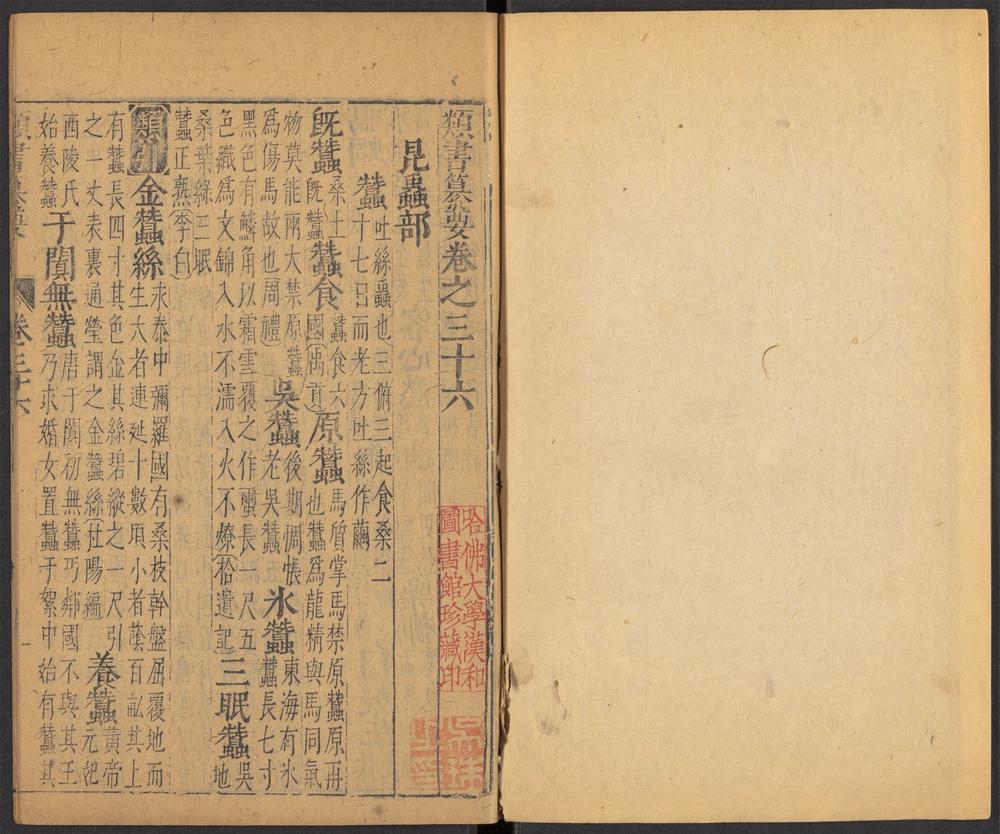 類書纂要卷之三十六
昆蟲部
蠶 吐絲蟲也三俯三起食桑二
十七日而老方吐絲作繭
旣蠶 桑土
旣蠶 蠶食 蠶食六
國 禹貢 原蠶 馬質掌馬禁原蠶原再
也蠶爲龍精與馬同氣
物莫能兩大禁原蠶
爲傷馬故也周禮 吳蠶 後期惆悵
老吳蠶 氷蠶 東海有氷
蠶長七寸
黑色有鱗角以霜雪覆之作蠒長一尺五
色織爲文錦入水不濡入火不燎拾遺記 三眠蠶 吳
地
桑葉綠三眠
蠶正熟李白
類引 金蠶絲 永泰中彌羅國有桑枝幹盤屈覆地而
生大者連延十數頃小者蔭百畝其上
有蠶長四寸其色金其絲碧縱之一尺引
之一丈表裏通瑩謂之金蠶絲杜陽編 養蠶 黃帝
元妃
西陵氏
始養蠶 于闐無蠶 唐于闐初無蠶丐鄰國不與其王
乃求婚女置蠶于絮中始有蠶其
類書纂要 卷三十六 一
哈佛大學漢和
圖書館珍藏印